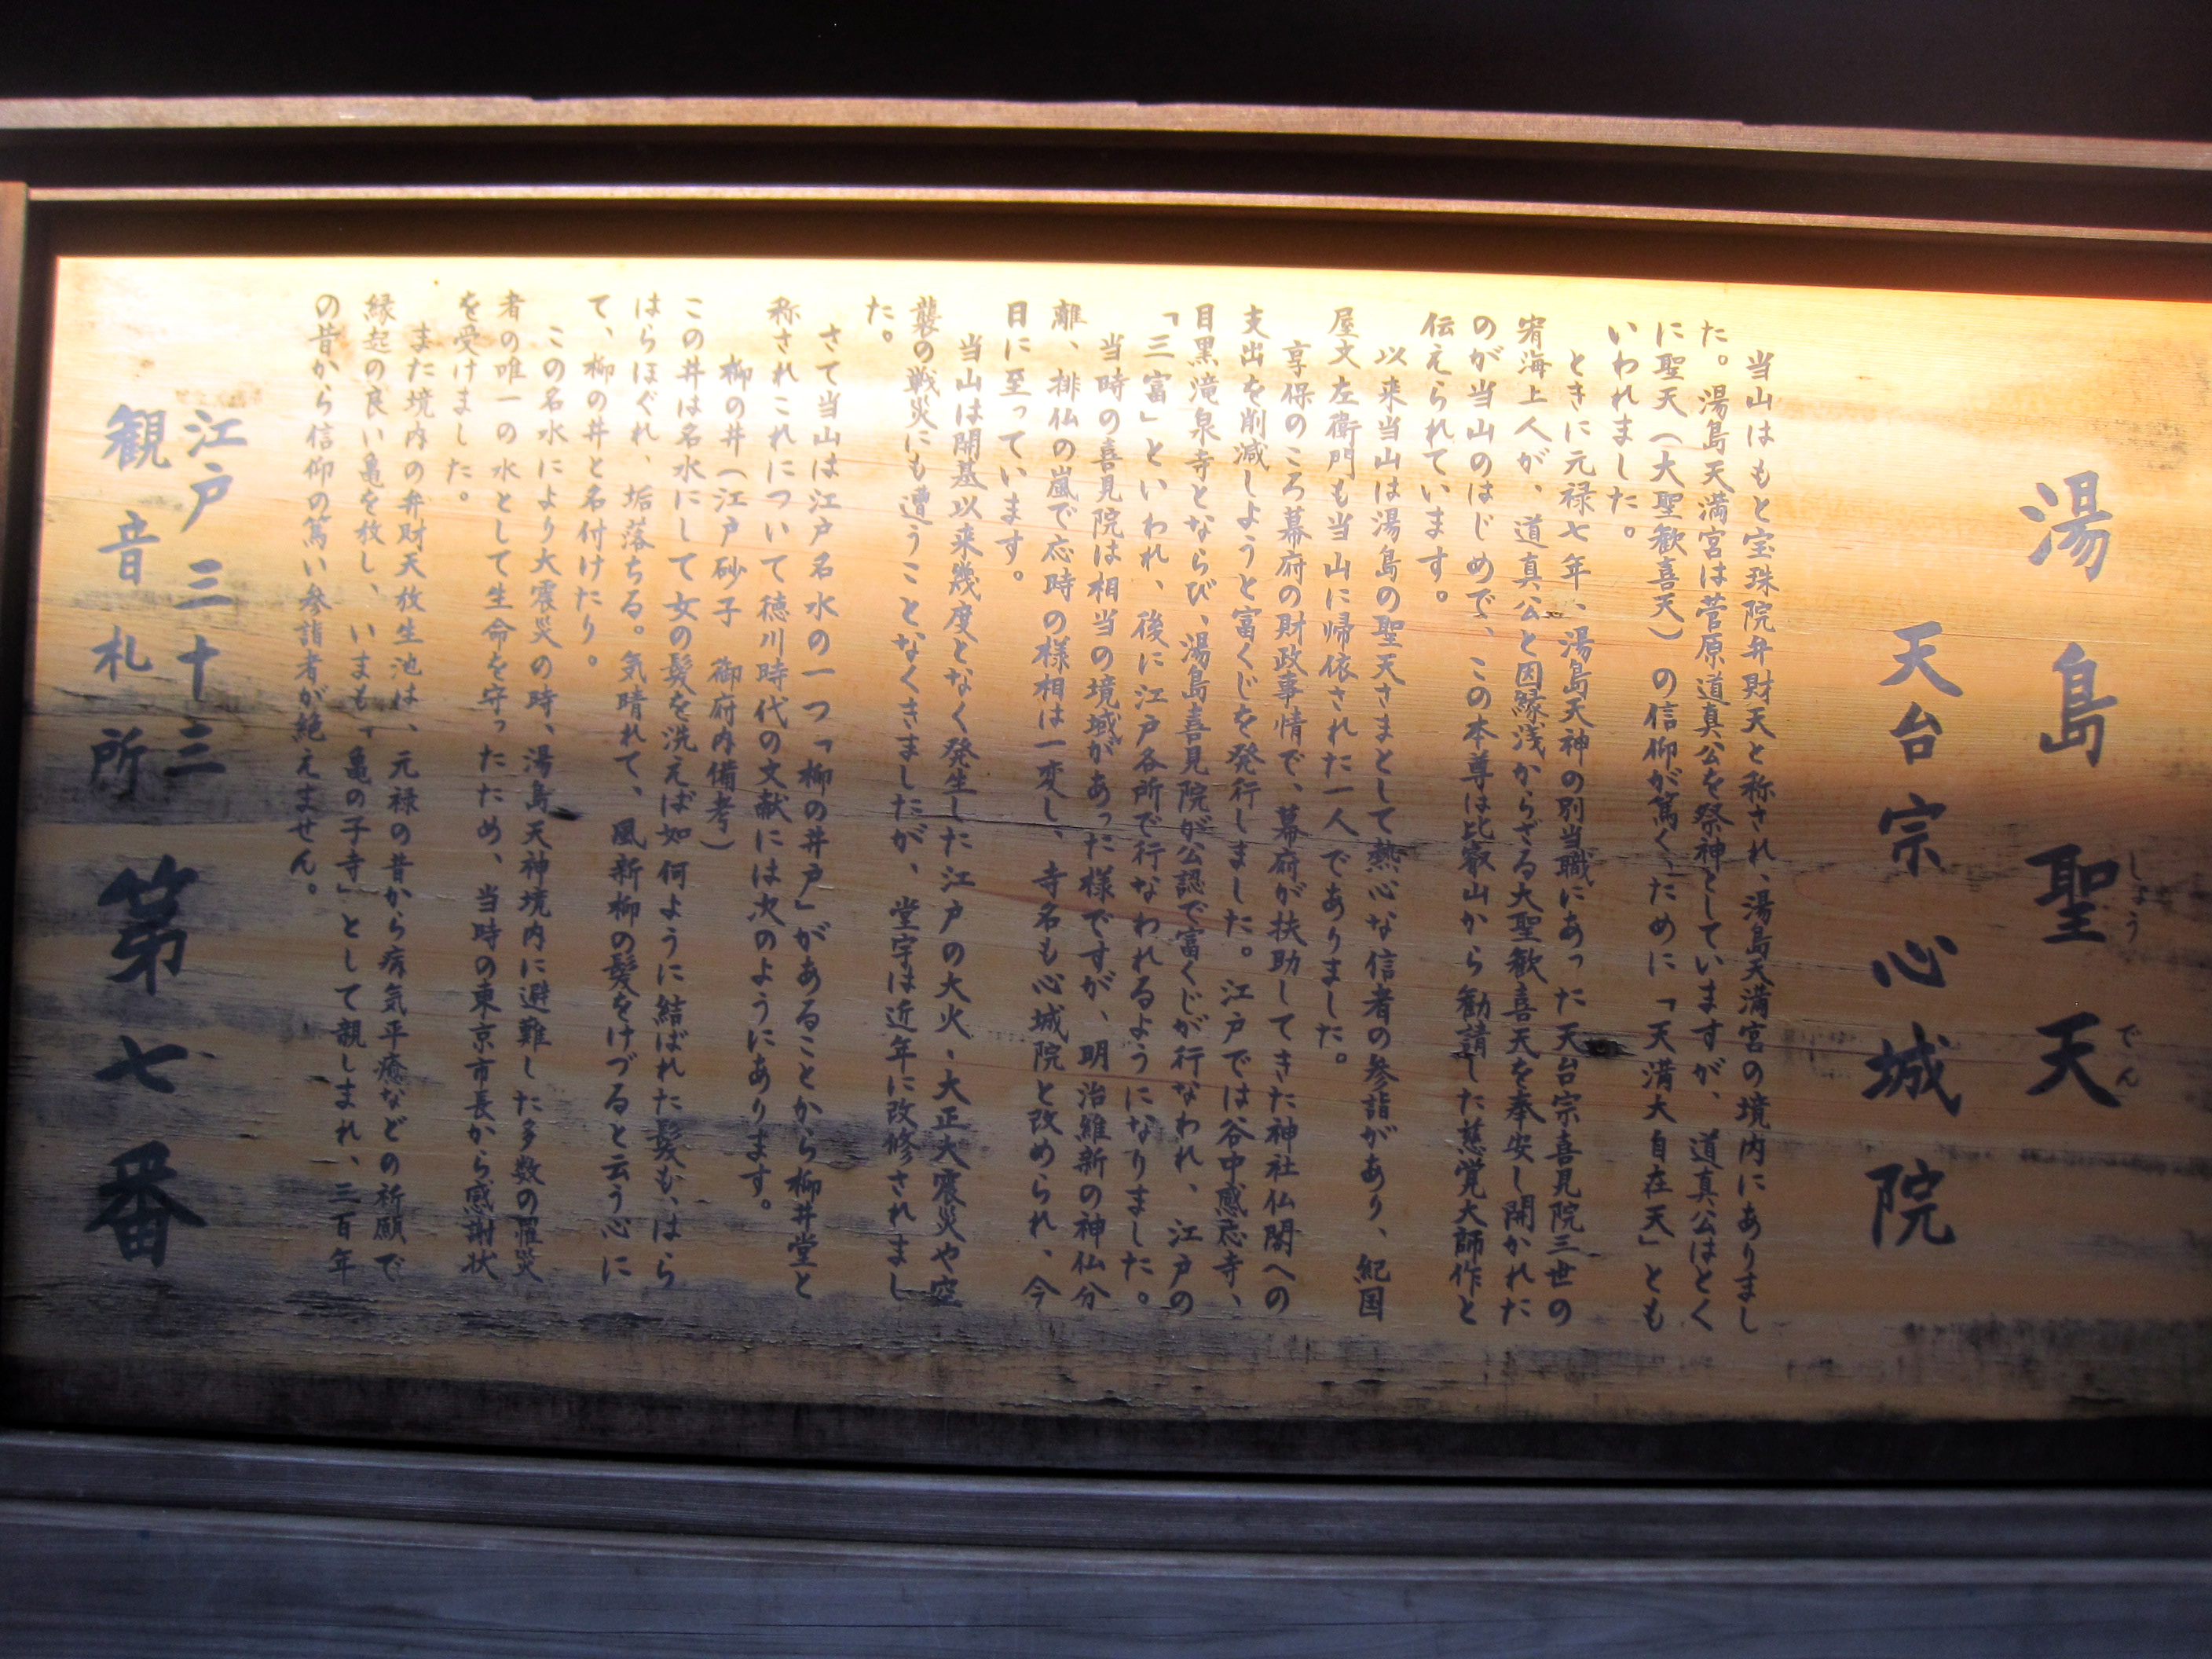 湯島聖天
しょう
でん
天台宗心城院
当山はもと宝珠院弁財天と称され、湯島天満宮の境内にありまし
た。湯島天満宮は菅原道真公を祭神としていますが、道真公はとく
に聖天(大聖歓喜天)の信仰が篤く、ために「天満大自在天」とも
いわれました。
ときに元禄七年、湯島天神の別当職にあった天台宗喜見院三世の
宥海上人が、道真公と因縁浅からざる大聖歓喜天を奉安し開かれた
のが当山のはじめで、この本尊は比叡山から勧請した慈覚大師作と
伝えられています。
以来当山は湯島の聖天さまとして熱心な信者の参詣があり、紀国
屋文左衛門も当山に帰依された一人でありました。
享保のころ幕府の財政事情で、幕府が扶助してきた神社仏閣への
支出を削減しようと富くじを発行しました。江戸では谷中感応寺、
目黒滝泉寺とならび、湯島喜見院が公認で富くじが行なわれ、江戸の
「三富」といわれ、後に江戸各所で行なわれるようになりました。
当時の喜見院は相当の境域があった様ですが、明治維新の神仏分
離、排仏の嵐で応時の様相は一変し、寺名も心城院と改められ、今
日に至っています。
当山は開基以来幾度となく発生した江戸の大火、大正大震災や空
襲の戦災にも遭うことなくきましたが、堂宇は近年に改修されまし
た。
さて当山は江戸名水の一つ「柳の井戸」があることから柳井堂と
称されこれについて徳川時代の文献には次のようにあります。
柳の井(江戸砂子 御府内備考)
この井は名水にして女の髪を洗えば如何ように結ばれた髪も、はら
はらほぐれ、垢落ちる。気晴れて、風新柳の髪をけづると云う心に
て、柳の井と名付けたり。
この名水により大震災の時、湯島天神境内に避難した多数の罹災
者の唯一の水として生命を守ったため、当時の東京市長から感謝状
を受けました。
また境内の弁財天放生池は、元禄の昔から病気平癒などの祈願で
縁起の良い亀を放し、いまも「亀の子寺」として親しまれ、三百年
の昔から信仰の篤い参詣者が絶えません。
江戸三十三
観音札所 第七番